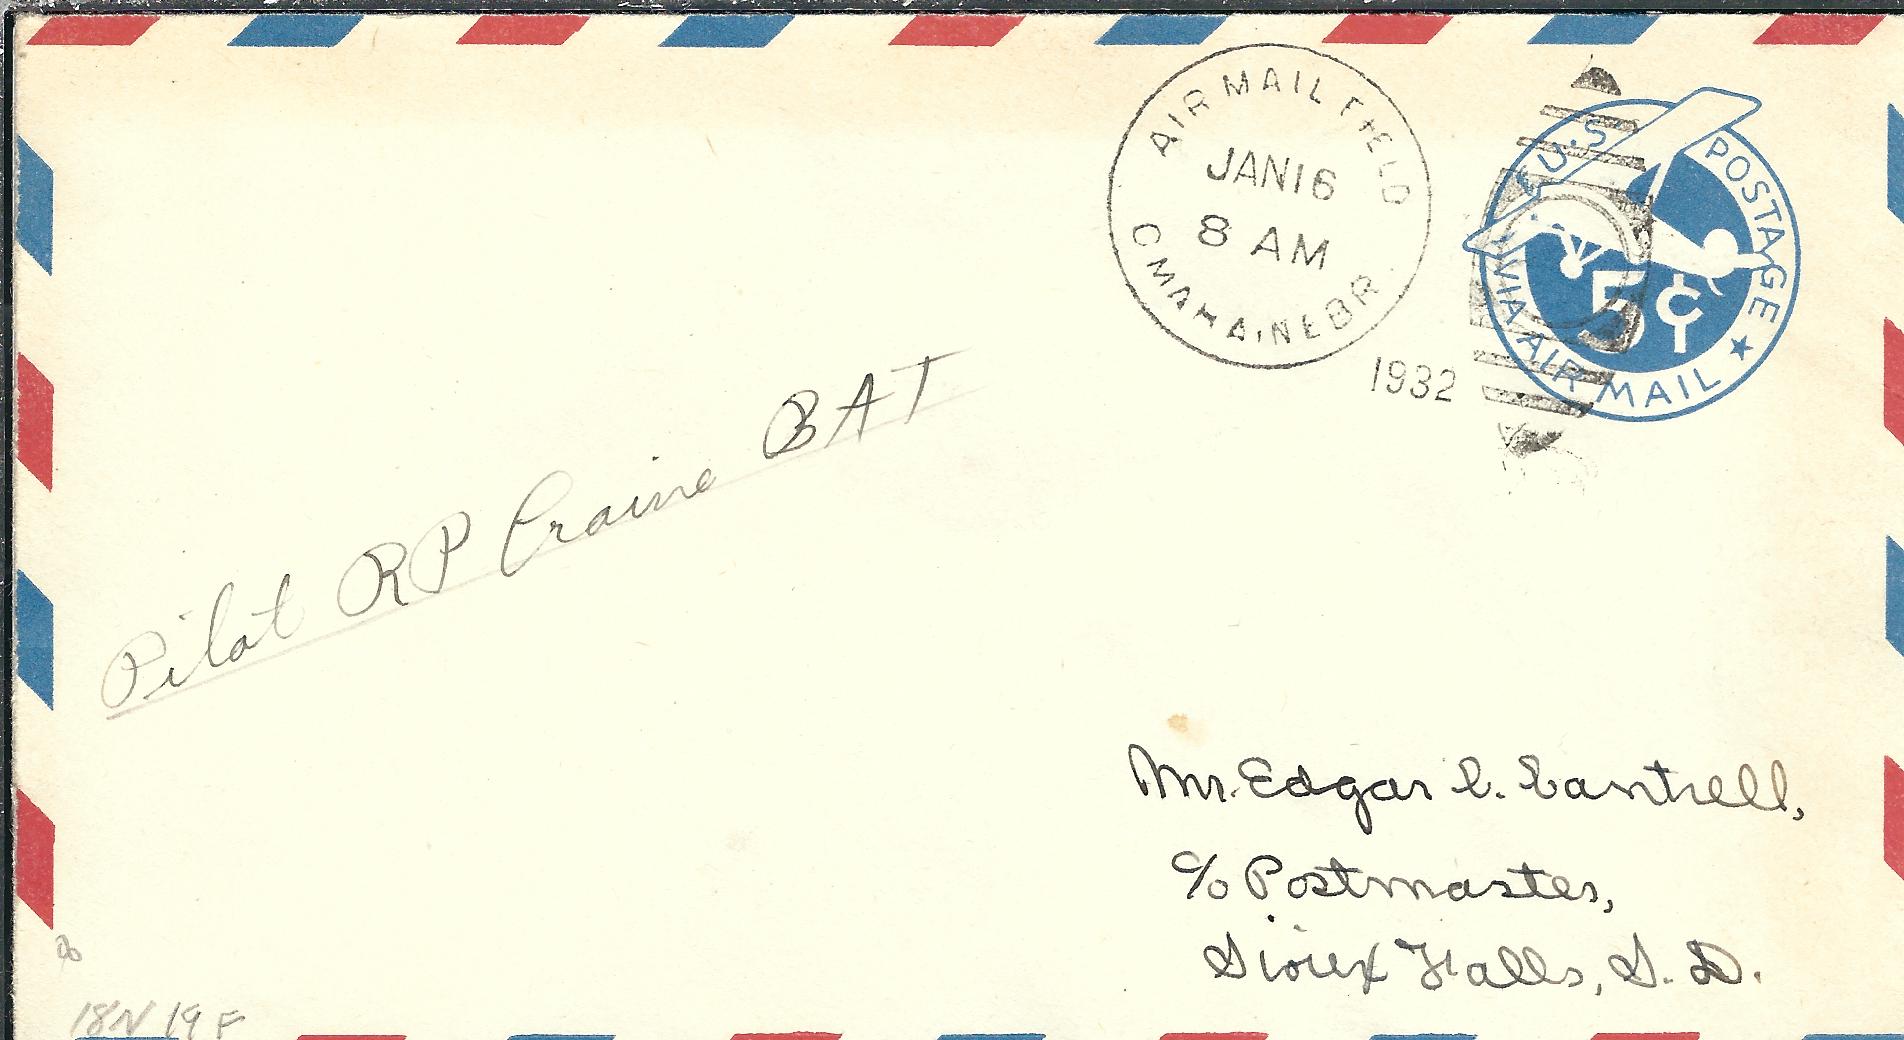 AIR MAIL FIELD
JAN 16
8 AM
OMAHA, NEBR.
1932
U.S. POSTAGE
5¢
VIA AIR MAIL
Pilot RP Craine BAT
Mr. Edgar C. Cantrell,
c/o Postmaster,
Sioux Falls, S. D.
18N 19F